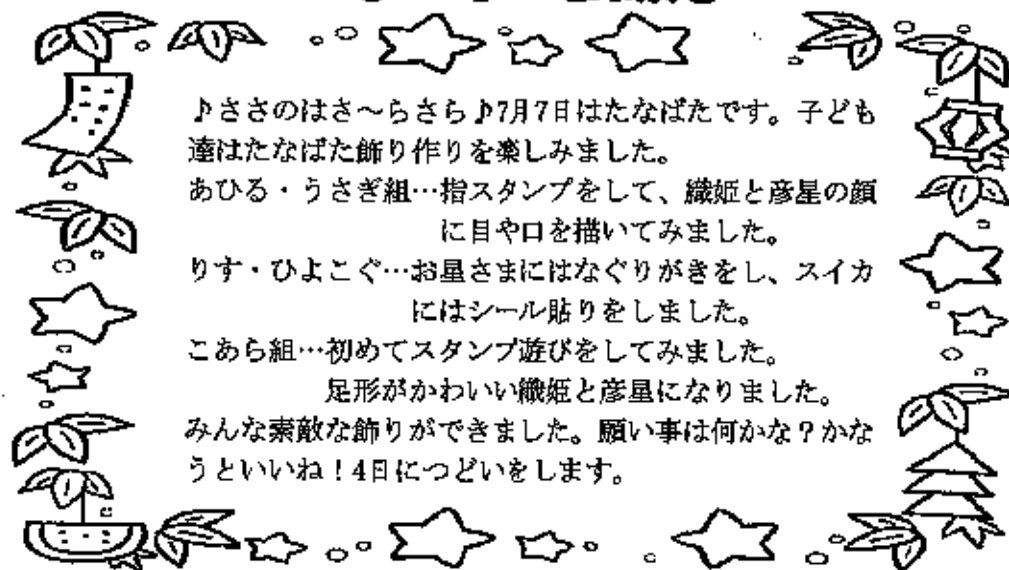 ♪ささのはさ～らさら♪7月7日はたなばたです。子ども
達はたなばた飾り作りを楽しみました。
あひる・うさぎ組…指スタンプをして、織姫と彦星の顔
に目や口を描いてみました。
りす・ひよこぐ…お星さまにはなぐりがきをし、スイカ
にはシール貼りをしました。
こあら組…初めてスタンプ遊びをしてみました。
足形がかわいい織姫と彦星になりました。
みんな素敵な飾りができました。願い事は何かな？かな
うといいね！4日につどいをします。